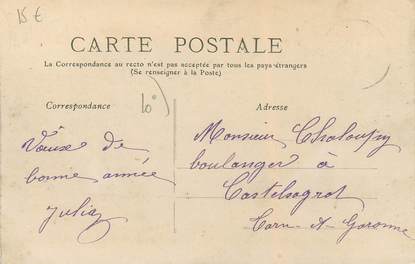 15 €
CARTE POSTALE
La Correspondance au recto n'est pas acceptée par tous les pays étrangers
(Se renseigner à la Poste)
Correspondance
10
Adresse
Vœux de
bonne année
Julia
Monsieur Chaloupy
boulanger à
Castelsagrat
Tarn-&-Garonne